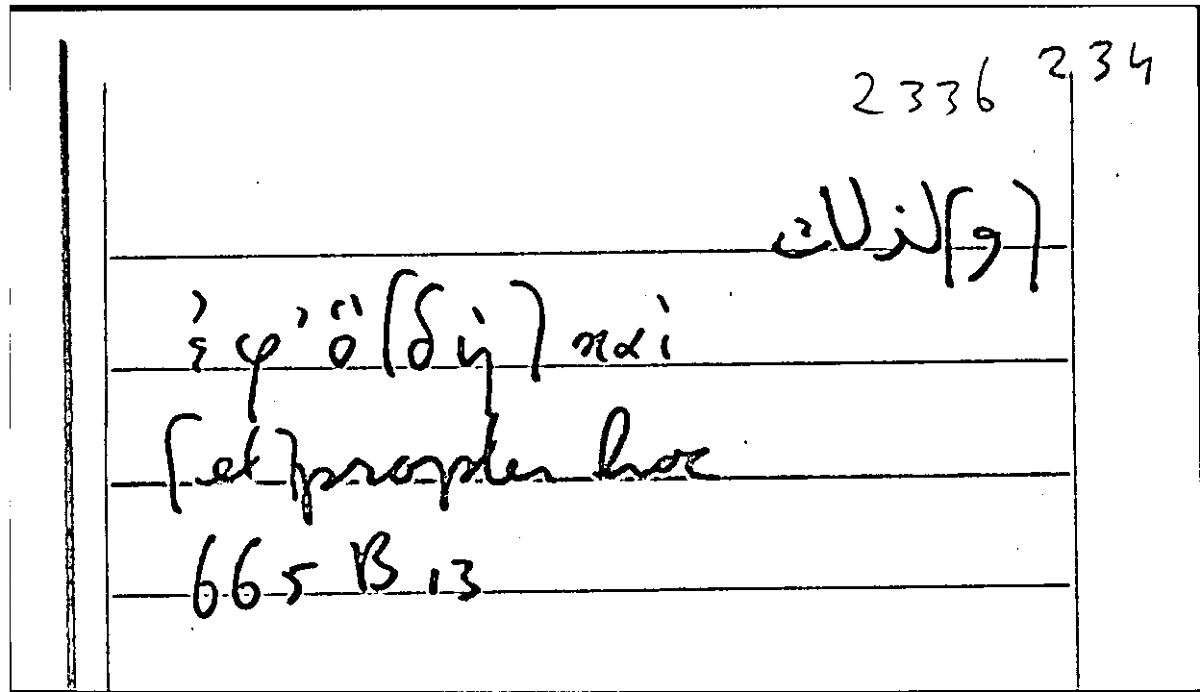 234
2336
(و)لذلك
ἐφ' ὃ (δὴ) καὶ
(et) propter hoc
665 B 13